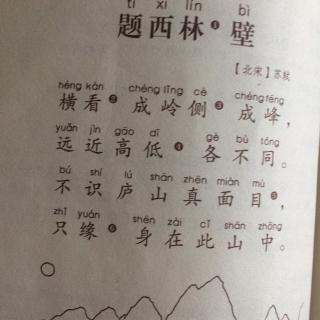 tí xī lín bì
题西林❶壁
【北宋】苏轼
héng kàn chéng lǐng cè chéng fēng
横看❷成岭侧❸成峰，
yuǎn jìn gāo dī gè bù tóng
远近高低❹各不同。
bù shí lú shān zhēn miàn mù
不识庐山真面目❺，
zhǐ yuán shēn zài cǐ shān zhōng
只缘❻身在此山中。